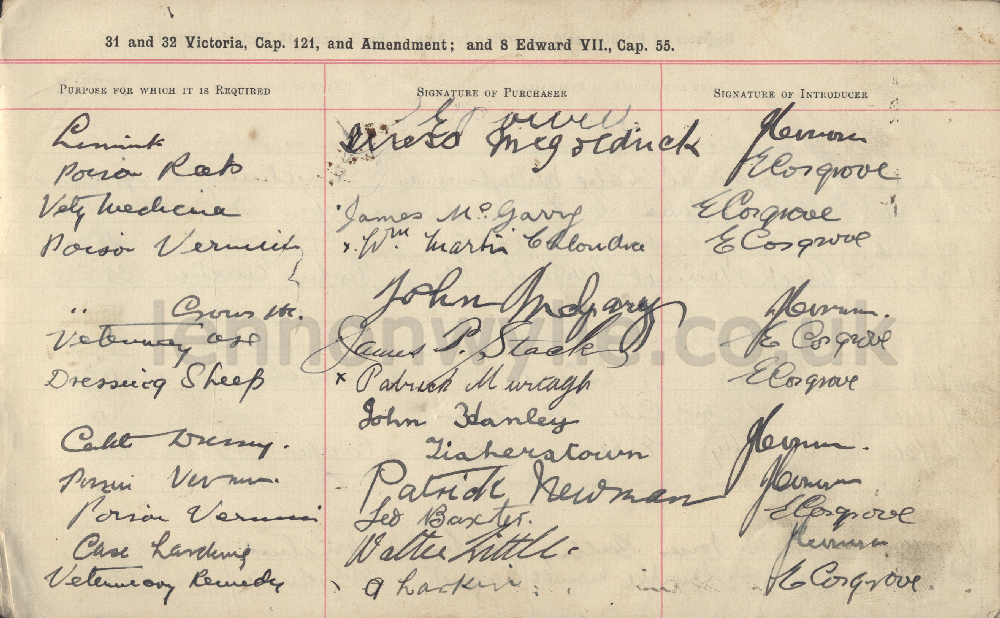 31 and 32 Victoria, Cap. 121, and Amendment; and 8 Edward VII., Cap. 55.
Purpose for which it is Required Signature of Purchaser Signature of Introducer
E Powell
Liniment McGoldrick
Poison Rats E Cosgrove
Vety Medicine James McGarry E Cosgrove
Poison Vermin x Wm Martin E Cosgrove
" Crows etc. John McGarry
Veterinary use James P. Stack E Cosgrove
Dressing Sheep x Patrick Murtagh E Cosgrove
John Hanley
Cattle Dressing. Lisherstown
Poison Vermin. Patrick Newman
Poison Vermin Leo Baxter. E Cosgrove
Case Hardening Walter Little
Veterinary Remedy Larkin E Cosgrove.
lennonwylie.co.uk